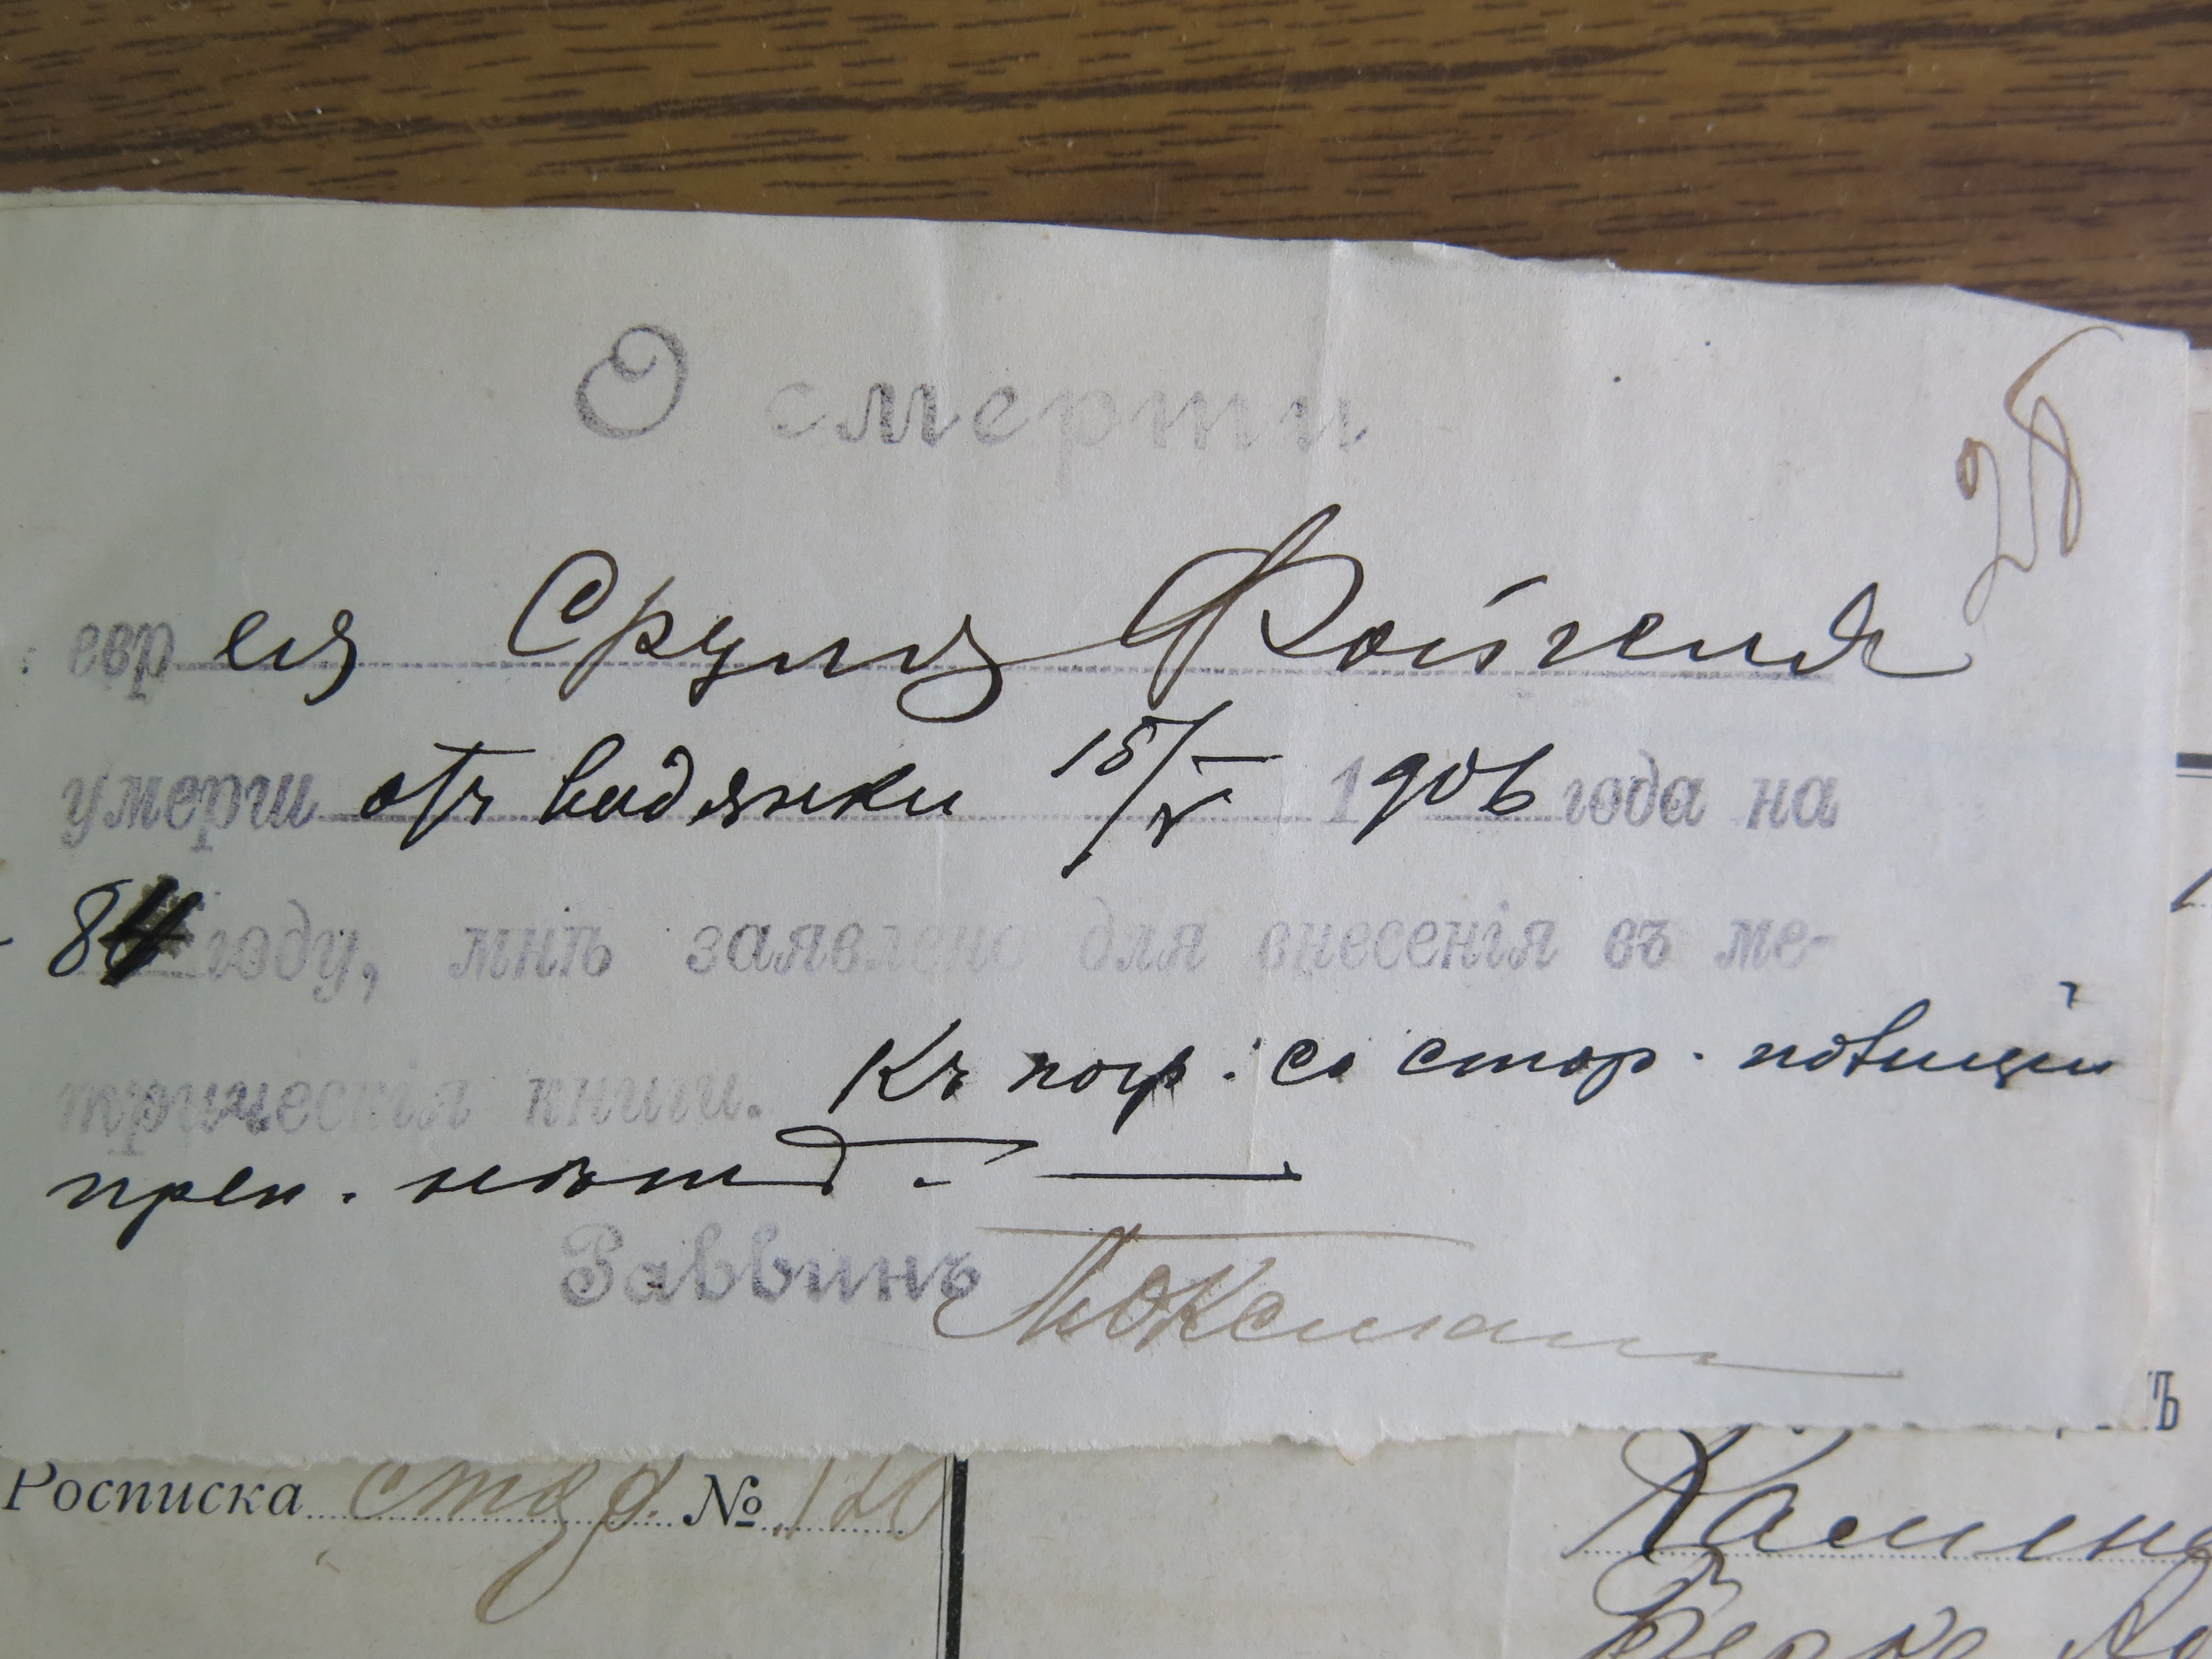 О смерти
28
евр ея Сруля Фойгеля
умерш отъ водянки 15/V 1906 года на
84 году, мнѣ заявлено для внесенія въ ме-
трическія книги. Къ погр: со стор. полиціи
преп. нѣтъ. —
Раввинъ
Росписка студ. № 120